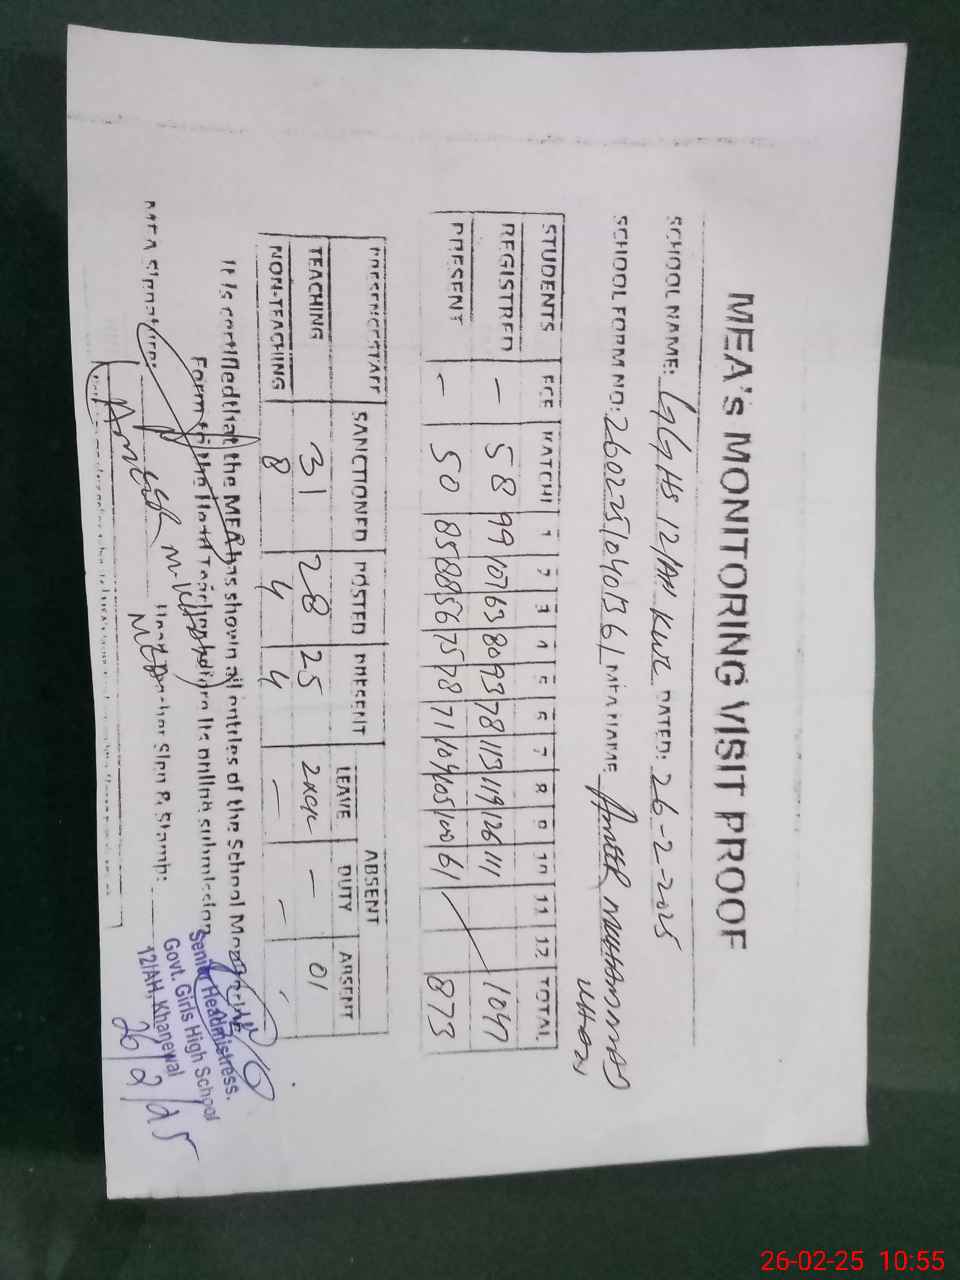 MEA's MONITORING VISIT PROOF
SCHOOL NAME: GGHS 12/AH KWL DATED: 26-2-2025
SCHOOL FORM NO: 26022510401361 MEA NAME Ameer Muhammad Khan
STUDENTS ECE KATCHI 1 2 3 4 5 6 7 8 9 10 11 12 TOTAL
REGISTRED – 58 99 107 63 80 93 78 113 119 126 111 1047
PRESENT – 50 85 88 56 75 78 71 104 105 100 61 873
PRESENCE STAFF SANCTIONED POSTED PRESENT ABSENT
LEAVE DUTY ABSENT
TEACHING 31 28 25 – 01
NON-TEACHING 8 4 4 – – -
It is certified that the MEA has shown all entries of the School Monitoring
Form to the Head Teacher before its online submission
MEA Signature: Head Teacher Sign & Stamp:
Ameer M.
MEA
Senior Headmistress.
Govt. Girls High School
12/AH, Khanewal
26/2/25
26-02-25 10:55